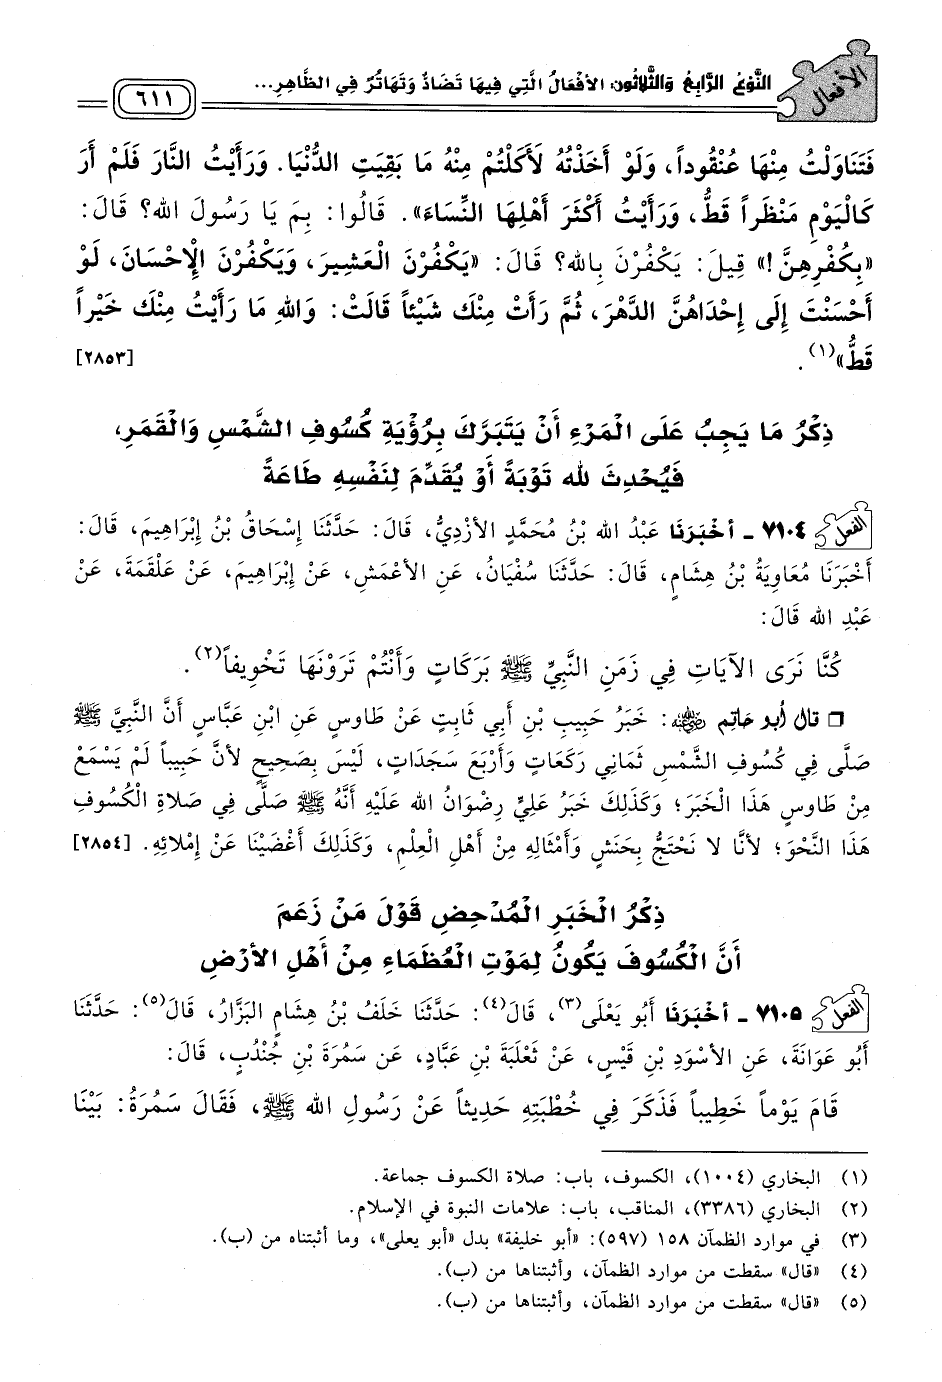 الأفعال
النَّوْعُ الرَّابِعُ وَالثَّلَاثُونَ: الأَفْعَالُ الَّتِي فِيهَا تَضَادٌّ وَتَهَاتُرٌ فِي الظَّاهِرِ...
٦١١
فَتَنَاوَلْتُ مِنْهَا عُنْقُوداً، وَلَوْ أَخَذْتُهُ لَأَكَلْتُمْ مِنْهُ مَا بَقِيَتِ الدُّنْيَا. وَرَأَيْتُ النَّارَ فَلَمْ أَرَ
كَالْيَوْمِ مَنْظَراً قَطُّ، وَرَأَيْتُ أَكْثَرَ أَهْلِهَا النِّسَاءَ». قَالُوا: بِمَ يَا رَسُولَ اللهِ؟ قَالَ:
«بِكُفْرِهِنَّ!» قِيلَ: يَكْفُرْنَ بِاللهِ؟ قَالَ: «يَكْفُرْنَ الْعَشِيرَ، وَيَكْفُرْنَ الْإِحْسَانَ، لَوْ
أَحْسَنْتَ إِلَى إِحْدَاهُنَّ الدَّهْرَ، ثُمَّ رَأَتْ مِنْكَ شَيْئاً قَالَتْ: وَاللهِ مَا رَأَيْتُ مِنْكَ خَيْراً
قَطُّ»(١). [٢٨٥٣]
ذِكْرُ مَا يَجِبُ عَلَى الْمَرْءِ أَنْ يَتَبَرَّكَ بِرُؤْيَةِ كُسُوفِ الشَّمْسِ وَالْقَمَرِ،
فَيُحْدِثَ لله تَوْبَةً أَوْ يُقَدِّمَ لِنَفْسِهِ طَاعَةً
الفعل ٧١٠٤ - أَخْبَرَنَا عَبْدُ اللهِ بْنُ مُحَمَّدٍ الأَزْدِيُّ، قَالَ: حَدَّثَنَا إِسْحَاقُ بْنُ إِبْرَاهِيمَ، قَالَ:
أَخْبَرَنَا مُعَاوِيَةُ بْنُ هِشَامٍ، قَالَ: حَدَّثَنَا سُفْيَانُ، عَنِ الأَعْمَشِ، عَنْ إِبْرَاهِيمَ، عَنْ عَلْقَمَةَ، عَنْ
عَبْدِ اللهِ قَالَ:
كُنَّا نَرَى الآيَاتِ فِي زَمَنِ النَّبِيِّ ﷺ بَرَكَاتٍ وَأَنْتُمْ تَرَوْنَهَا تَخْوِيفاً(٢).
❒ قال أبو حاتم رضي الله عنه: خَبَرُ حَبِيبِ بْنِ أَبِي ثَابِتٍ عَنْ طَاوسٍ عَنِ ابْنِ عَبَّاسٍ أَنَّ النَّبِيَّ ﷺ
صَلَّى فِي كُسُوفِ الشَّمْسِ ثَمَانِي رَكَعَاتٍ وَأَرْبَعَ سَجَدَاتٍ، لَيْسَ بِصَحِيحٍ لأَنَّ حَبِيباً لَمْ يَسْمَعْ
مِنْ طَاوسٍ هَذَا الْخَبَرَ؛ وَكَذَلِكَ خَبَرُ عَلِيٍّ رِضْوَانُ اللهِ عَلَيْهِ أَنَّهُ ﷺ صَلَّى فِي صَلَاةِ الْكُسُوفِ
هَذَا النَّحْوَ؛ لأَنَّا لا نَحْتَجُّ بِحَنَشٍ وَأَمْثَالِهِ مِنْ أَهْلِ الْعِلْمِ، وَكَذَلِكَ أَغْضَيْنَا عَنْ إِمْلَائِهِ. [٢٨٥٤]
ذِكْرُ الْخَبَرِ الْمُدْحِضِ قَوْلَ مَنْ زَعَمَ
أَنَّ الْكُسُوفَ يَكُونُ لِمَوْتِ الْعُظَمَاءِ مِنْ أَهْلِ الأَرْضِ
الفعل ٧١٠٥ - أَخْبَرَنَا أَبُو يَعْلَى(٣)، قَالَ(٤): حَدَّثَنَا خَلَفُ بْنُ هِشَامٍ الْبَزَّارُ، قَالَ(٥): حَدَّثَنَا
أَبُو عَوَانَةَ، عَنِ الأَسْوَدِ بْنِ قَيْسٍ، عَنْ ثَعْلَبَةَ بْنِ عَبَّادٍ، عَن سَمُرَةَ بْنِ جُنْدُبٍ، قَالَ:
قَامَ يَوْماً خَطِيباً فَذَكَرَ فِي خُطْبَتِهِ حَدِيثاً عَنْ رَسُولِ اللهِ ﷺ، فَقَالَ سَمُرَةُ: بَيْنَا
(١) البخاري (١٠٠٤)، الكسوف، باب: صلاة الكسوف جماعة.
(٢) البخاري (٣٣٨٦)، المناقب، باب: علامات النبوة في الإسلام.
(٣) في موارد الظمآن ١٥٨ (٥٩٧): «أبو خليفة» بدل «أبو يعلى»، وما أثبتناه من (ب).
(٤) «قال» سقطت من موارد الظمآن، وأثبتناها من (ب).
(٥) «قال» سقطت من موارد الظمآن، وأثبتناها من (ب).